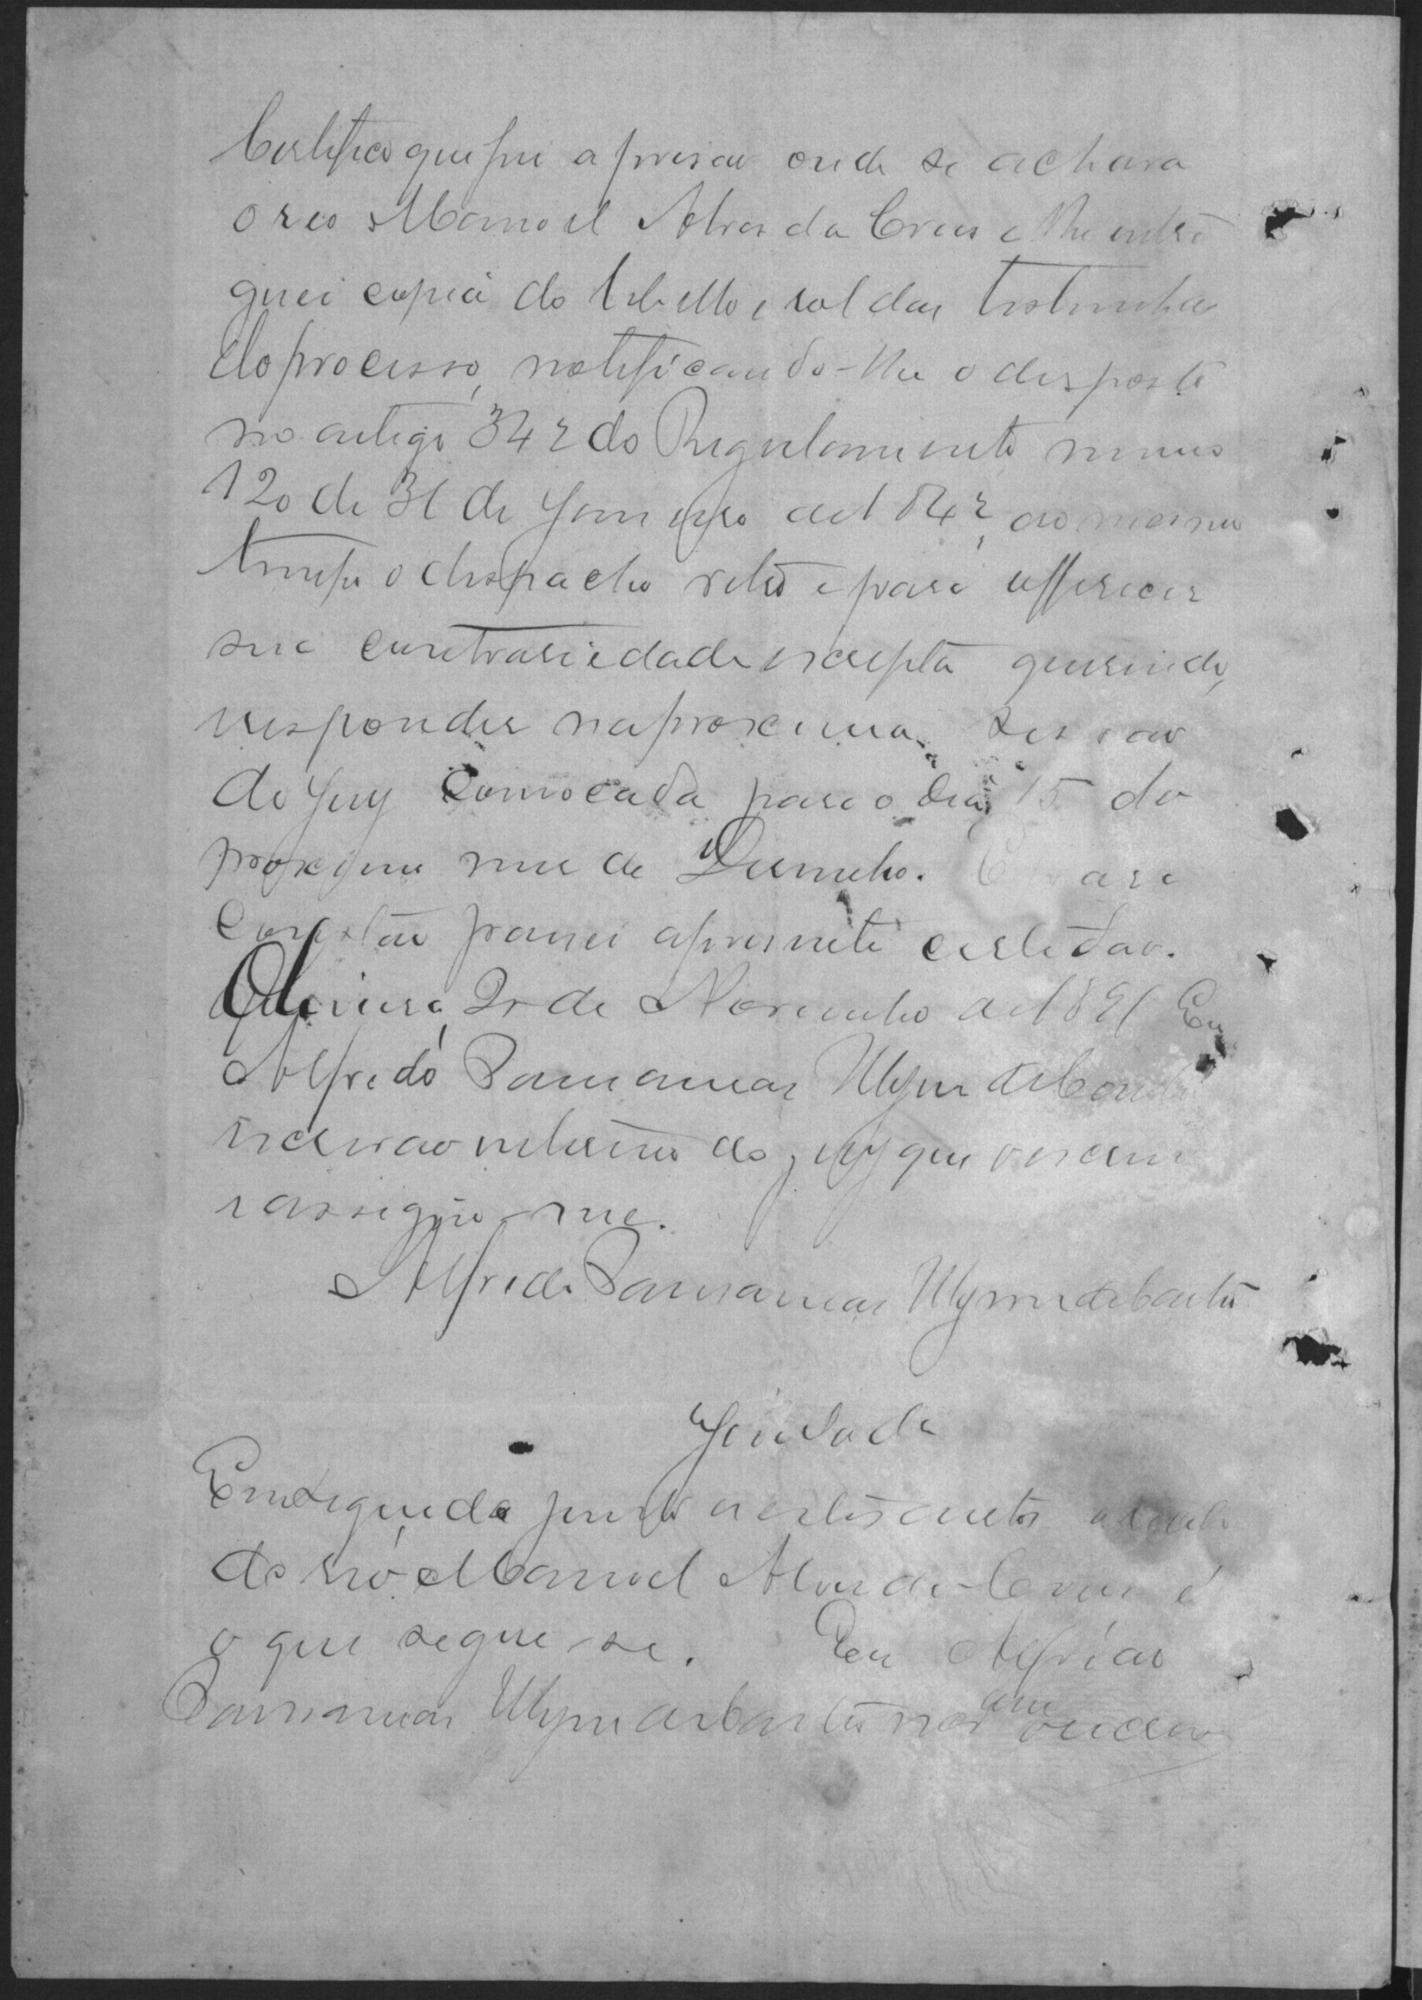 Certifico que fui a prisão onde se achava
o reo Manoel Alves da Cruz e lhe entre
guei copia do libello e rol das testemunhas
do processo, notificando-lhe o disposto
no artigo 342 do Regulamento numero
120 de 31 de Janeiro de 1842, ao mesmo
tempo o despacho retro e para offerecer
sua contrariedade escripta querendo,
responder na proxima sessão
do jury convocada para o dia 15 do
proximo mez de Dezembro. E para
constar passei a presente certidão.
Oliveira, 2 de Novembro de 1891 Eu
Alfredo Parnamas de Castro
escrivão interino do jury que o escrevi
e assigno-me.
Alfredo Parnamas de Castro
Juntada
Em seguida junto a estes autos o recibo
do réo Manoel Alves da Cruz é
o que segue-se. Eu Alfredo
Parnamas de Castro escrivão